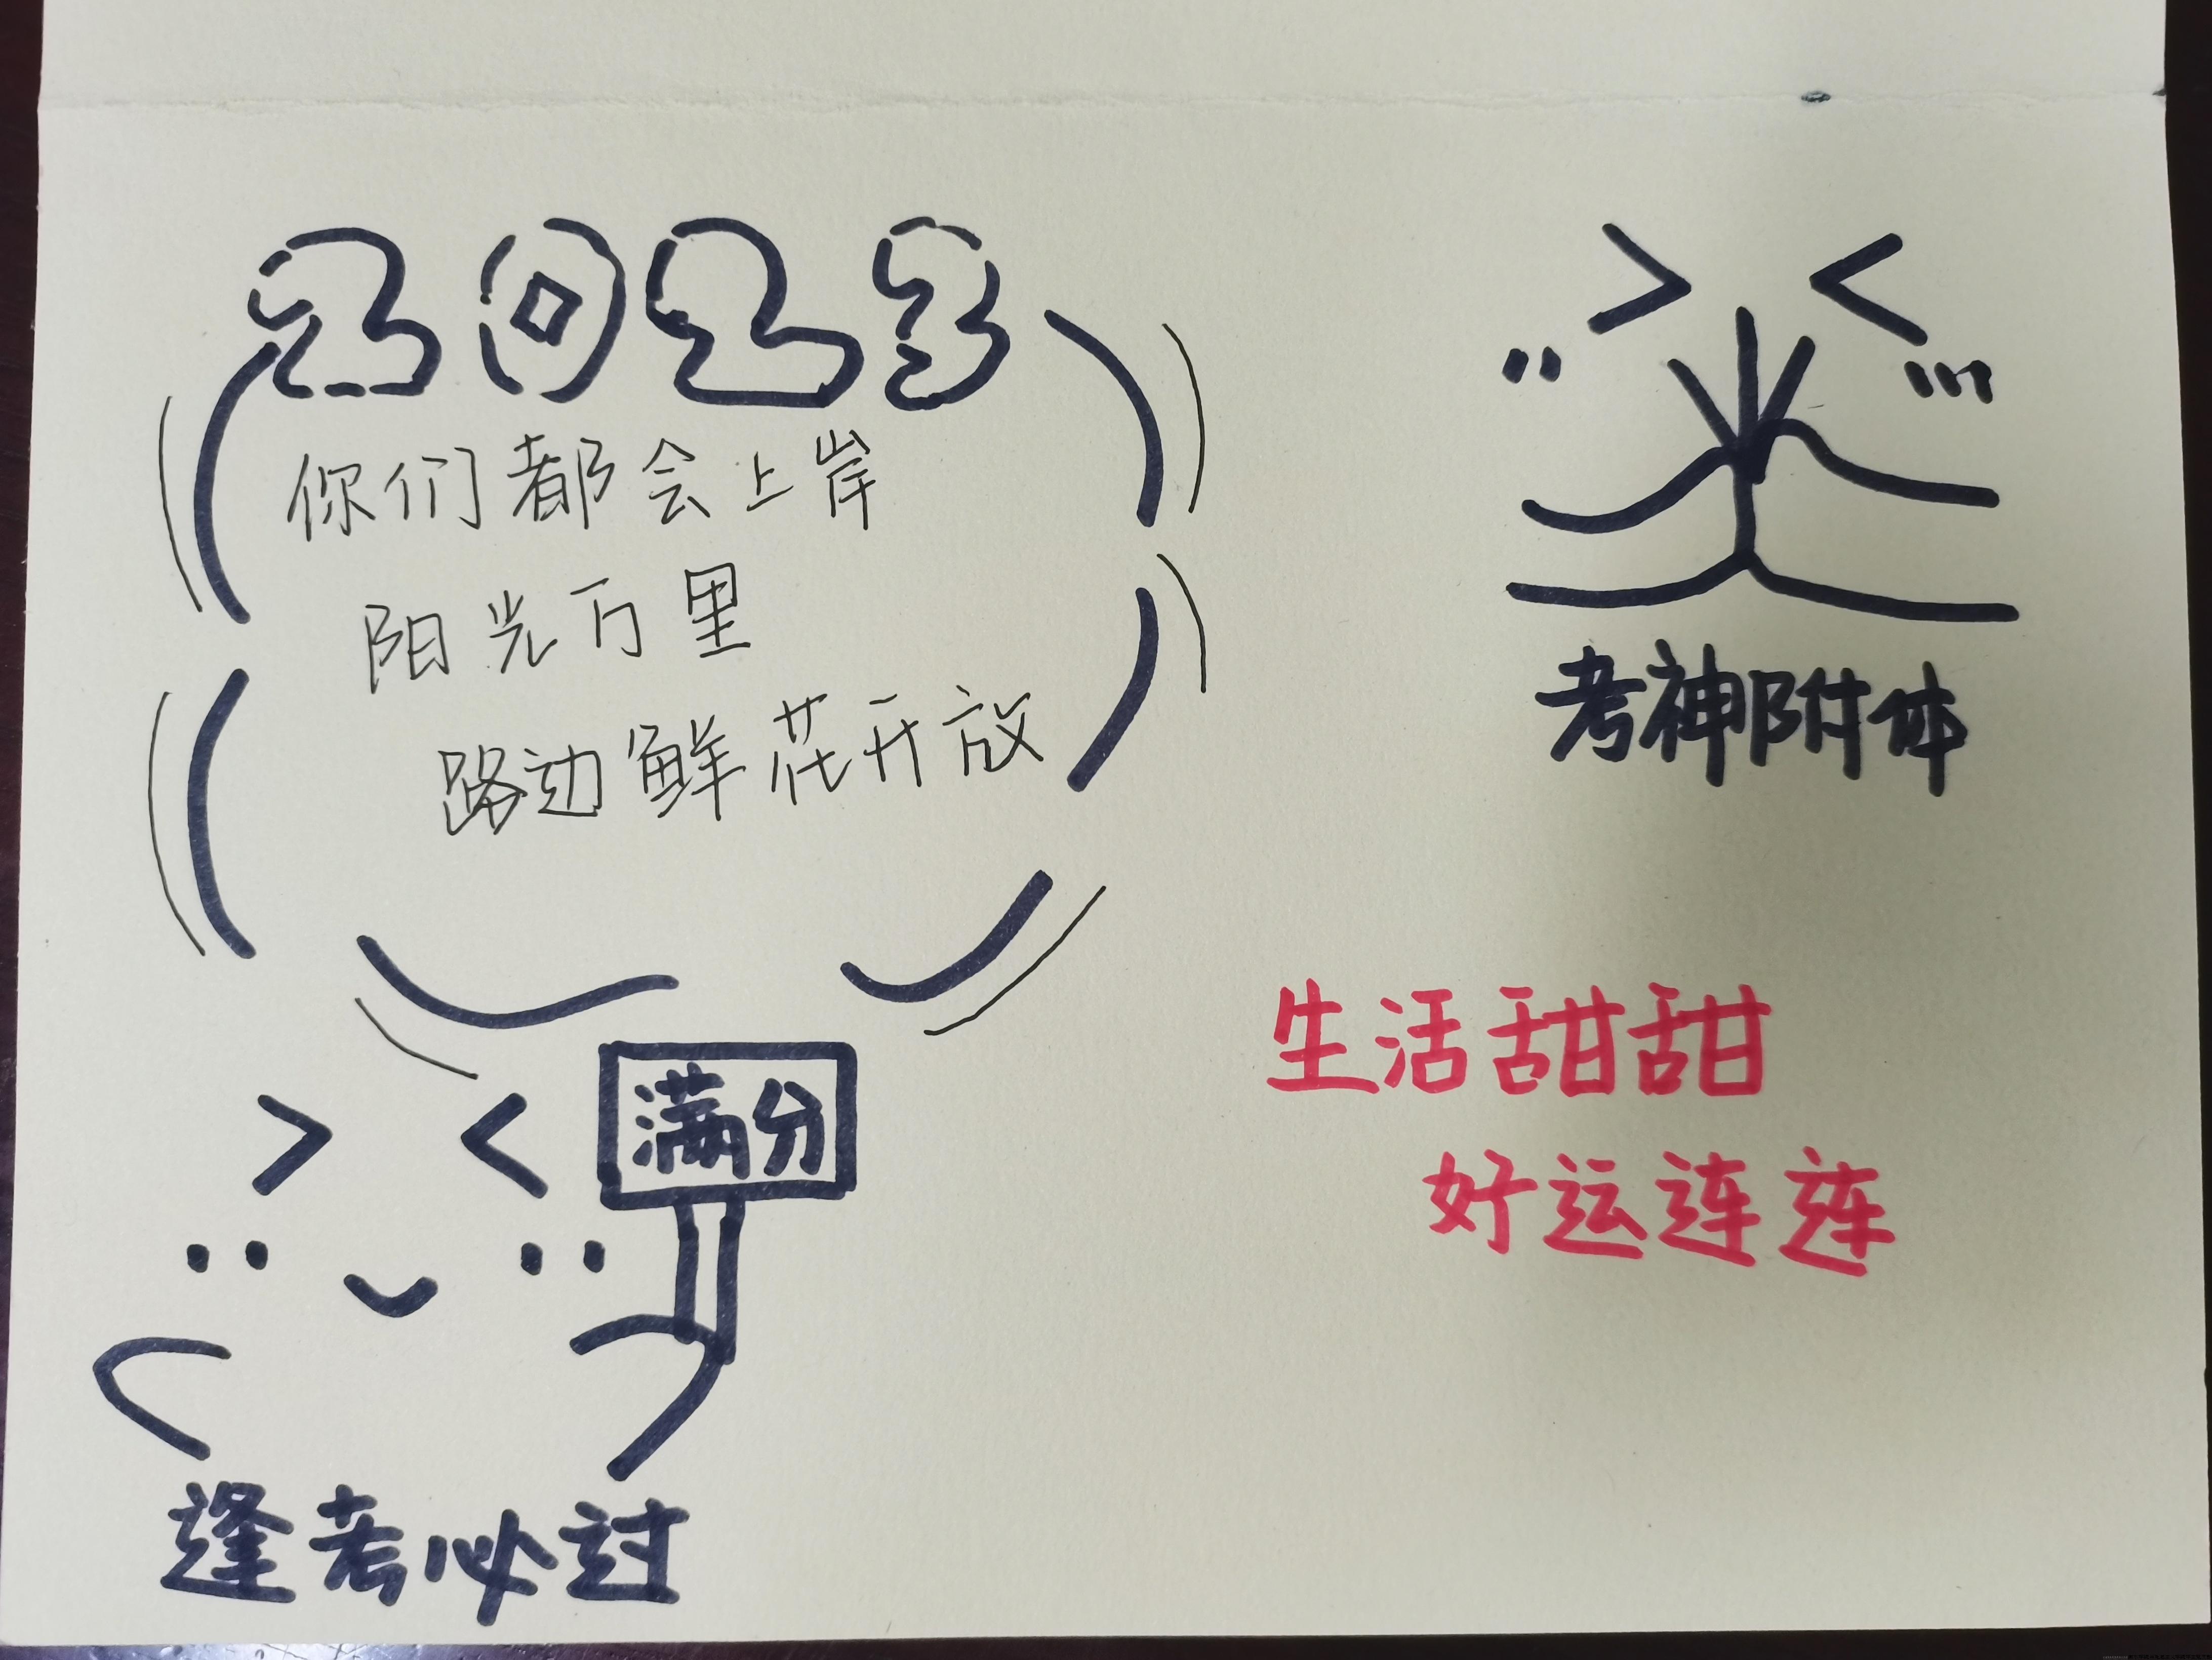 2023
你们都会上岸
阳光万里
路边鲜花开放
考神附体
生活甜甜
好运连连
满分
逢考必过